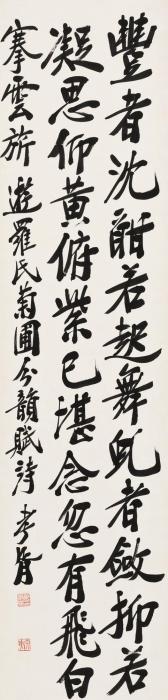 豐者沈酣若起舞癯者斂抑若
凝思仰黃俯紫已堪念忽有飛白
搴雲旂 遊羅氏菊圃分韻賦詩 孝胥